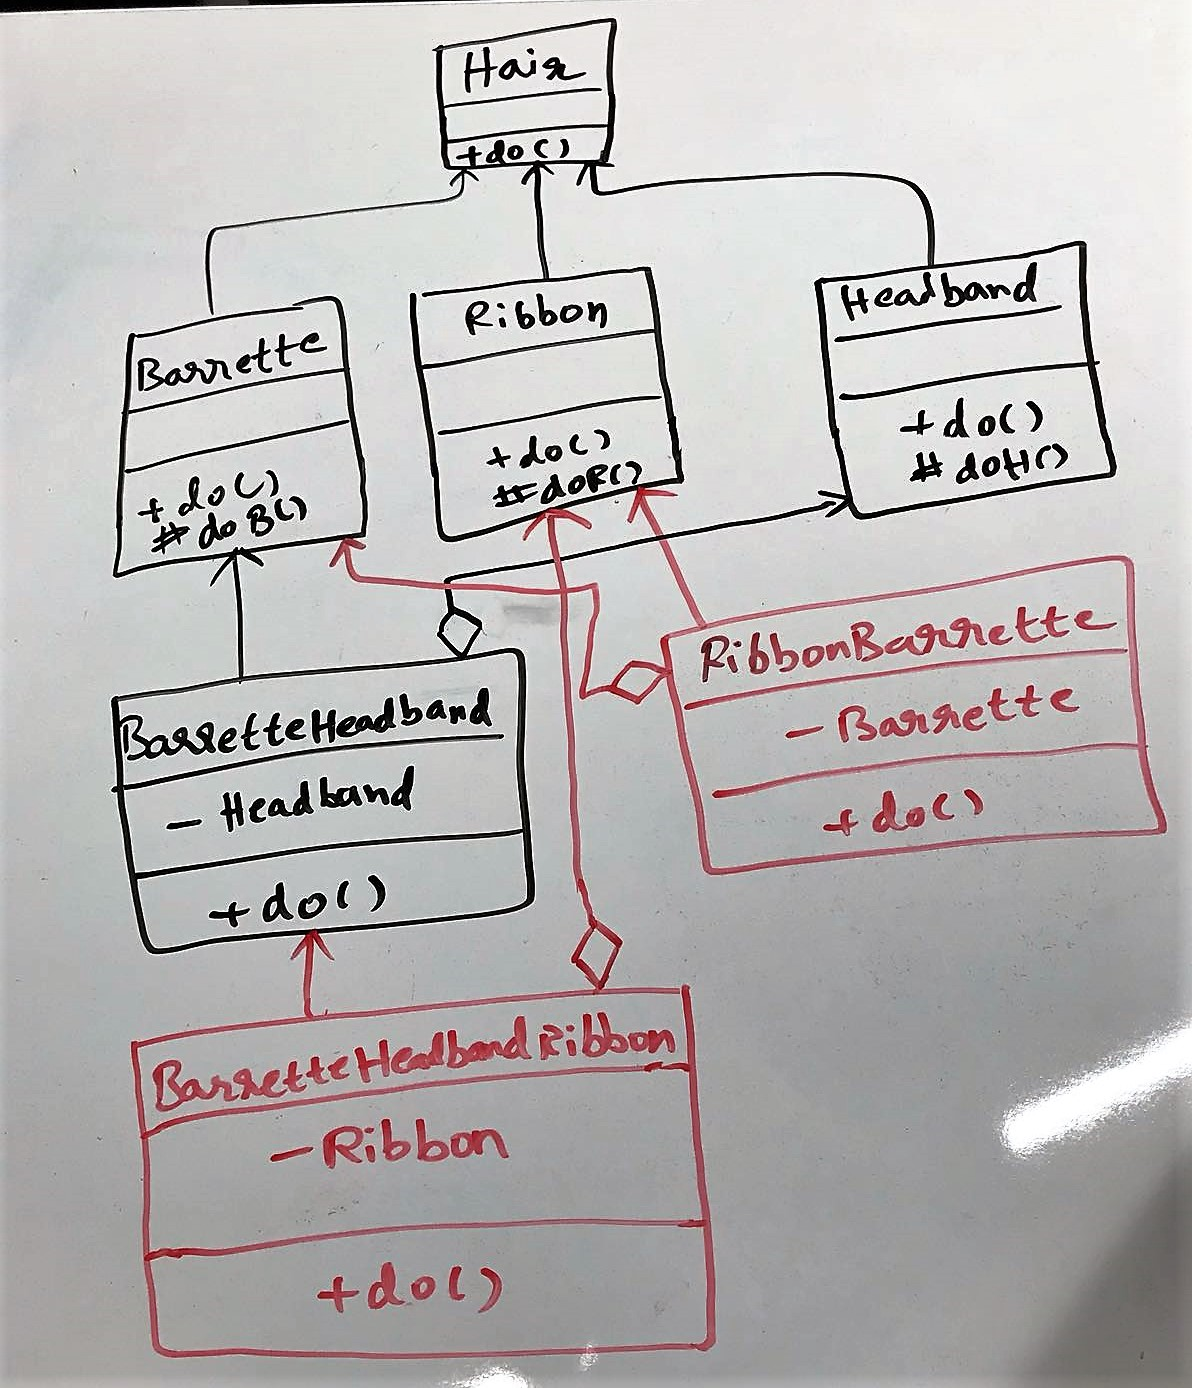 Hair
+do()
Barrette
+do()
#doB()
Ribbon
+do()
#doR()
Headband
+do()
#doH()
BarretteHeadband
- Headband
+do()
RibbonBarrette
- Barrette
+do()
BarretteHeadbandRibbon
- Ribbon
+do()